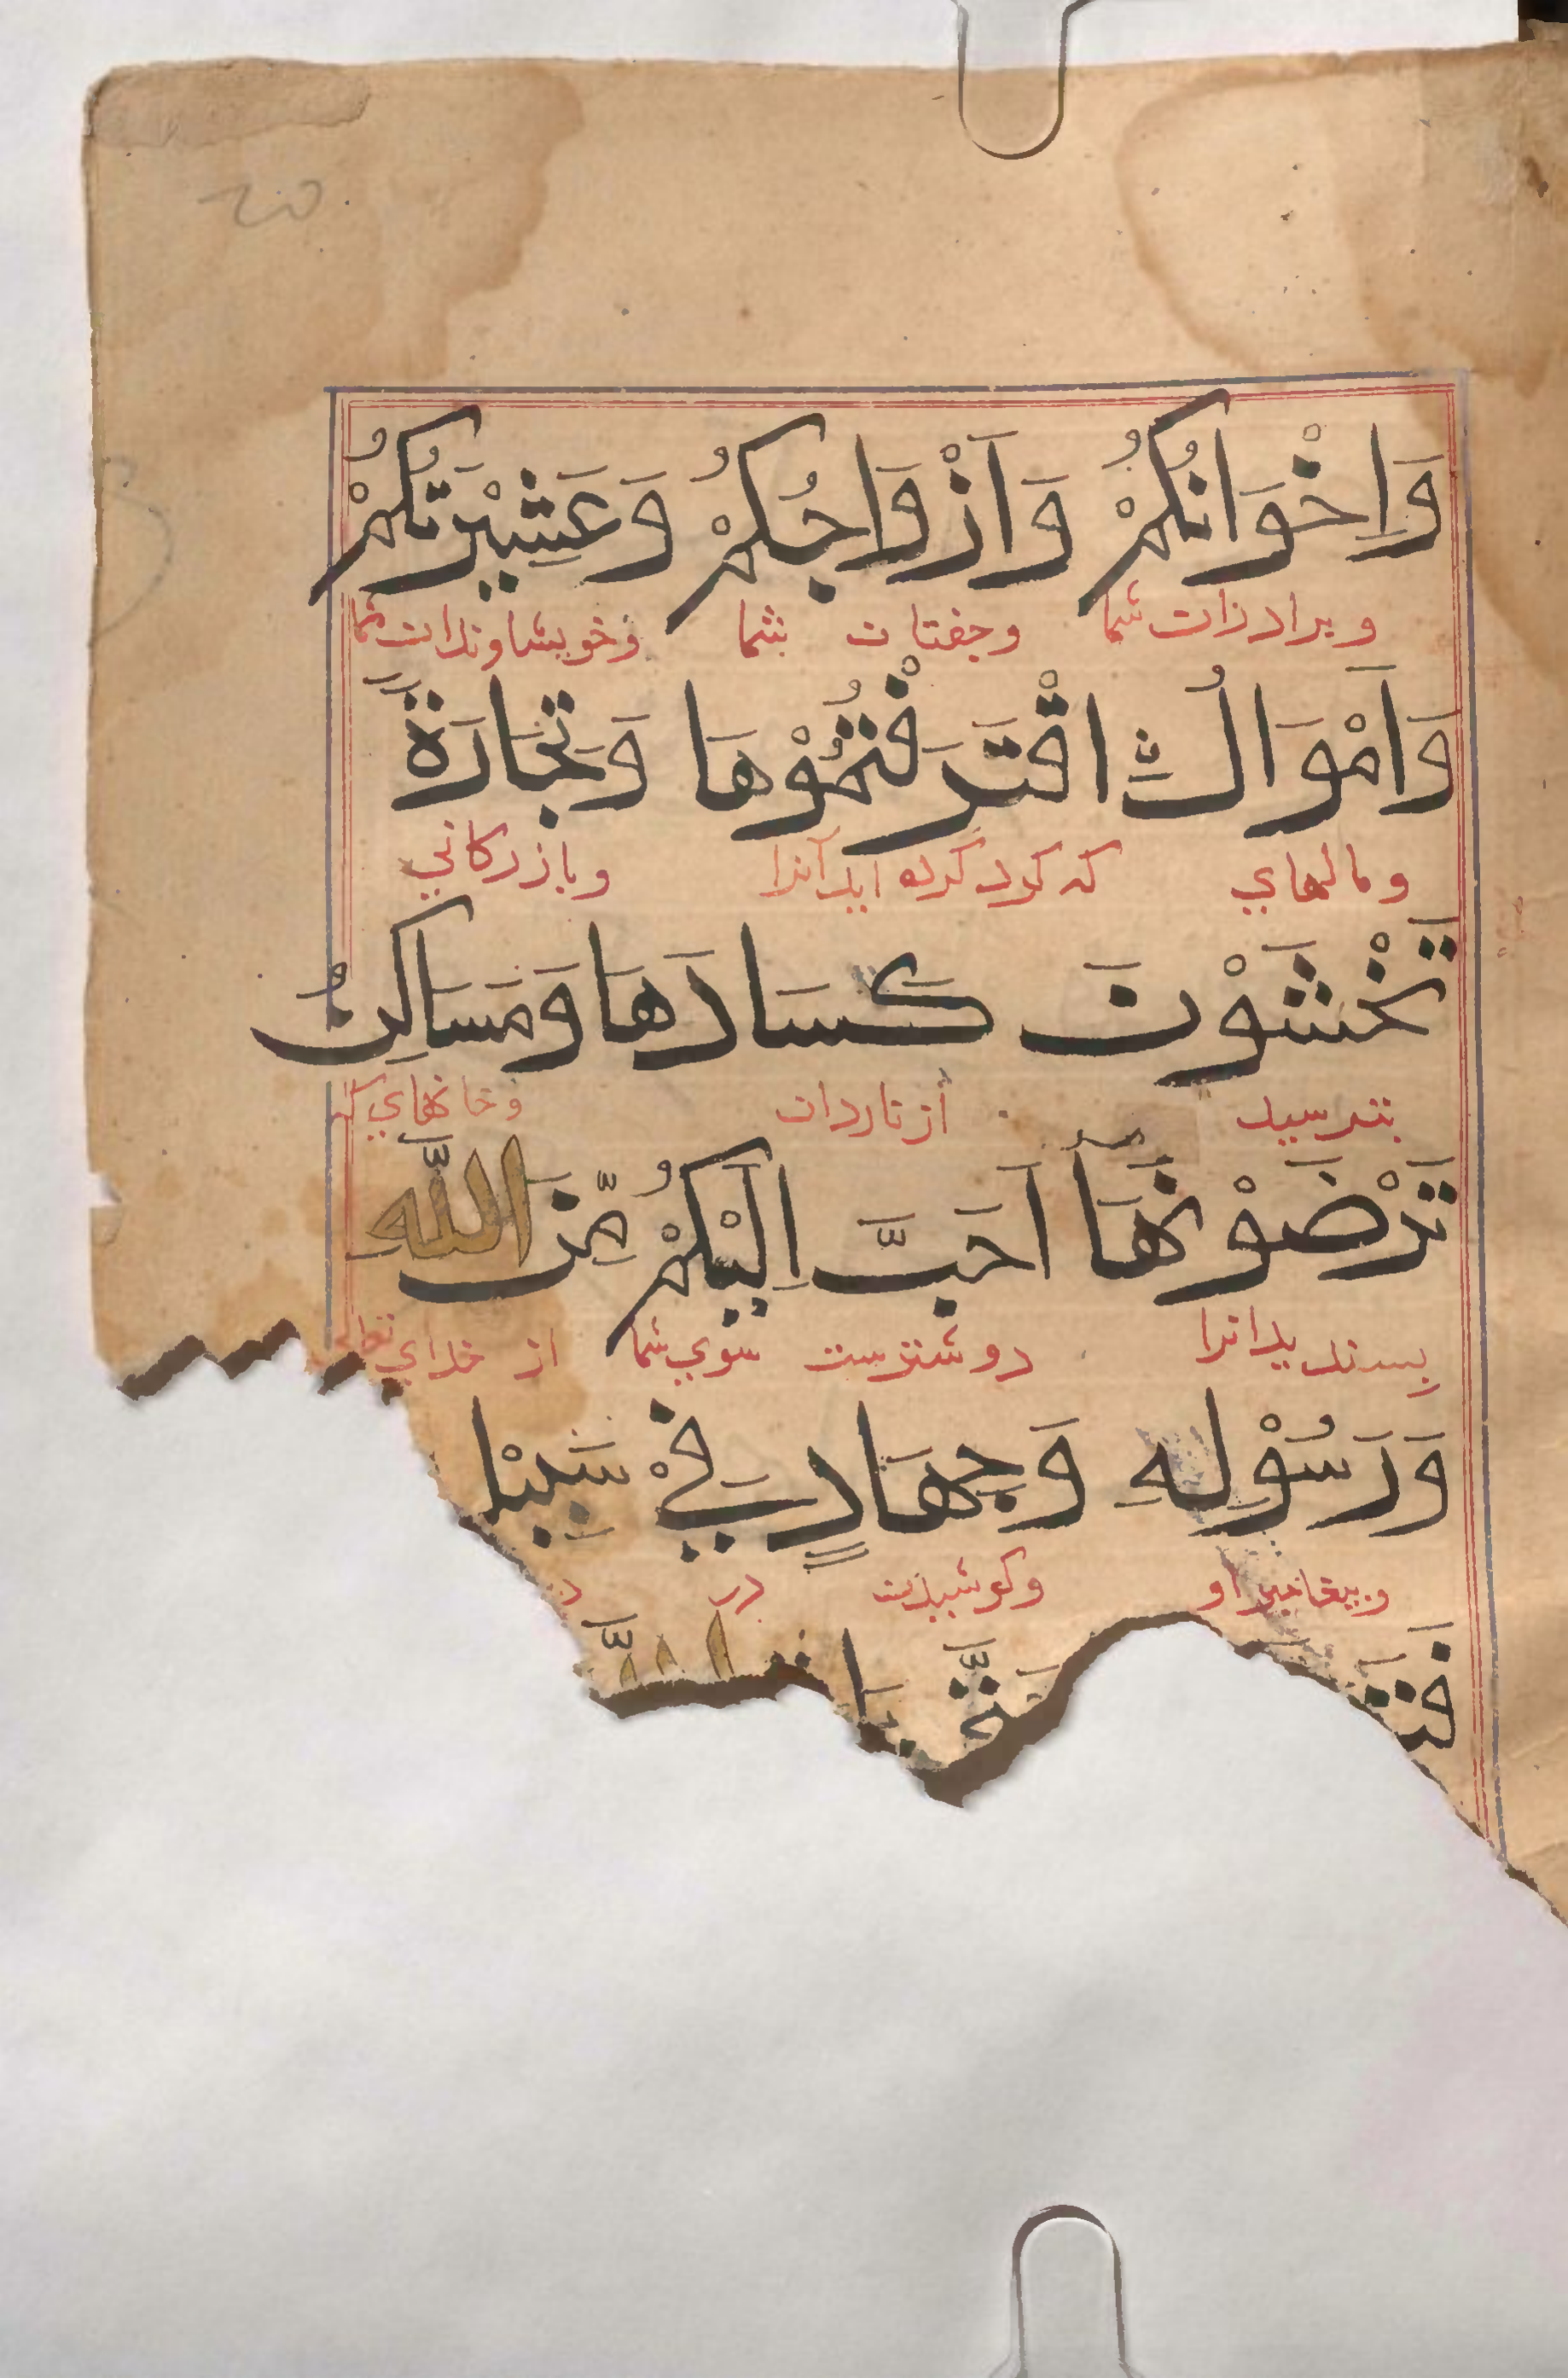 وَاِخْوَانُكُمْ وَاَزْوَاجُكُمْ وَعَشِيْرَتُكُمْ
وبرادران شما وجفتان شما وخويشاوندان شما
وَاَمْوَالُ ۨ اقْتَرَفْتُمُوْهَا وَتِجَارَةٌ
ومالهاي كه كرد كرده ايد آنرا وبازركاني
تَخْشَوْنَ كَسَادَهَا وَمَسَاكِنُ
بترسيد از ناردان وخانهاي كه
تَرْضَوْنَهَا اَحَبَّ اِلَيْكُمْ مِّنَ اللّٰهِ
پسنديد انرا دوسترست سوي شما از خداي تعالى
وَرَسُوْلِهِ وَجِهَادٍ فِيْ سَبِيْلِ
وپيغامبر او وكوشيدن در